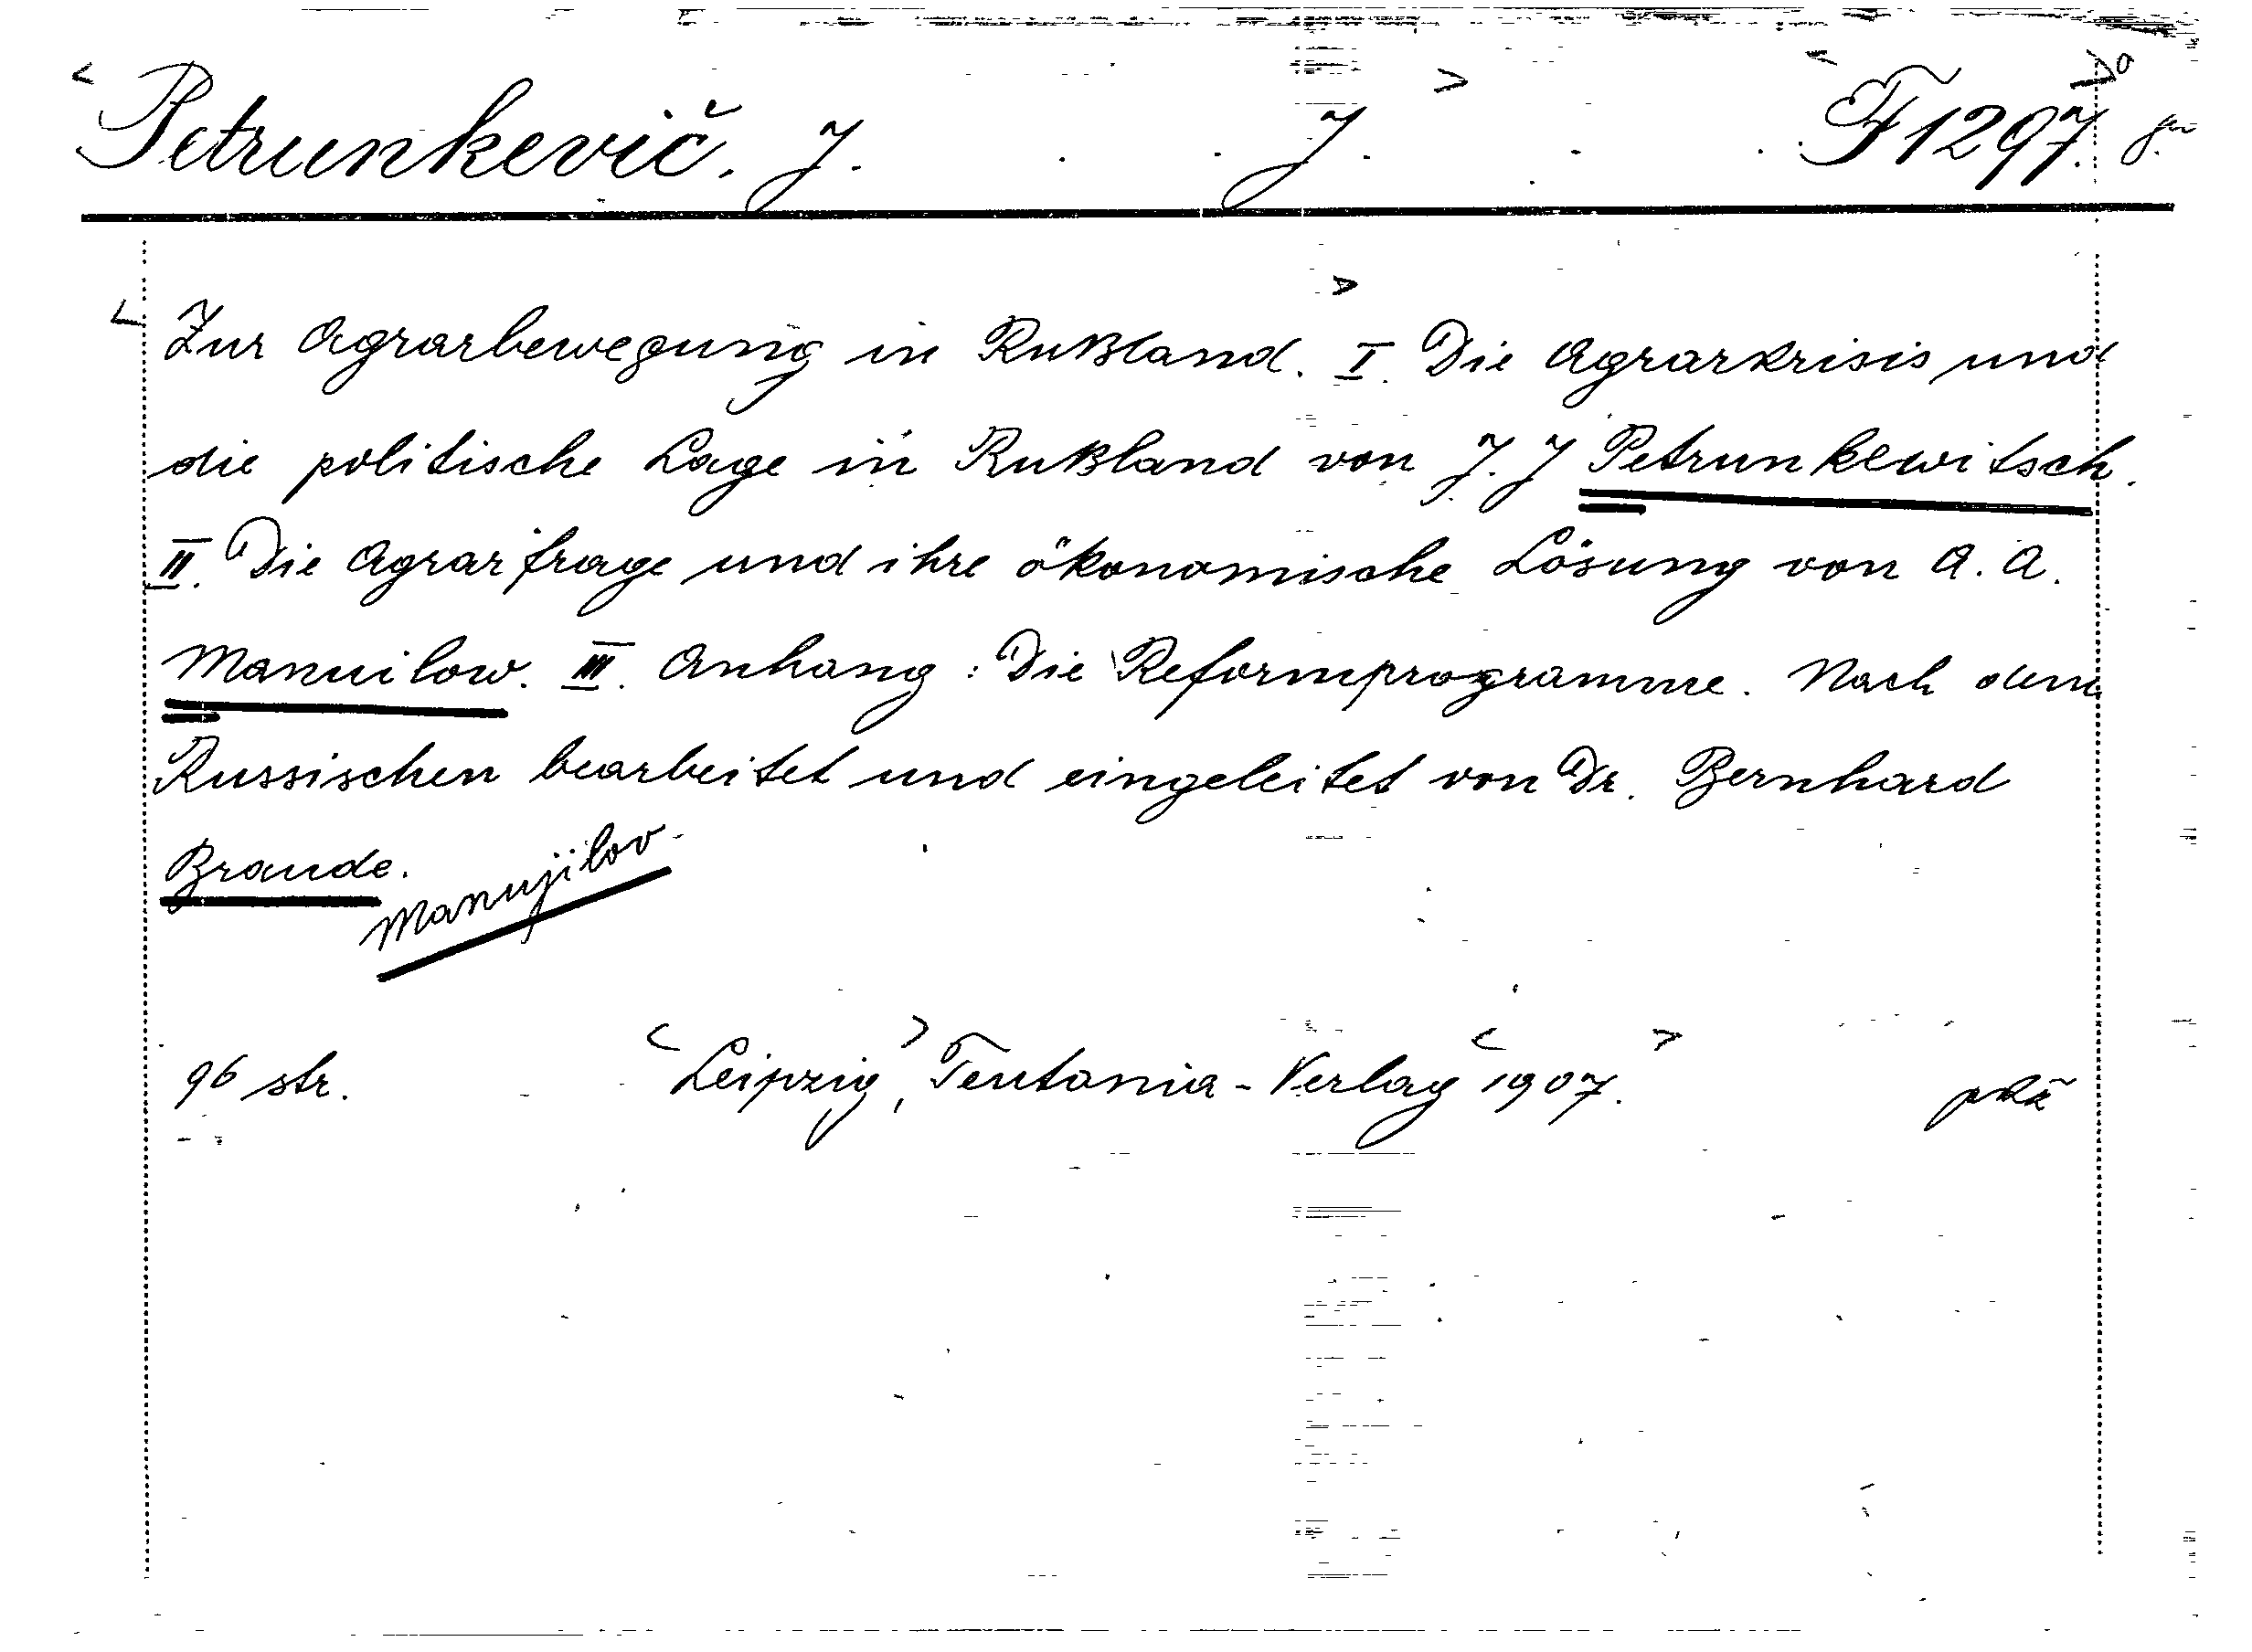 Petrunkevič. J. J. F 1297.
Zur Agrarbewegung in Rußland. I. Die Agrarkrisis und
die politische Lage in Rußland von J. J Petrunkewitsch.
II. Die Agrarfrage und ihre ökonomische Lösung von A. A.
Manuilow. III. Anhang: Die Reformprogramme. Nach dem
Russischen bearbeitet und eingeleitet von Dr. Bernhard
Braude.
Manujilov
96 str. Leipzig, Teutonia-Verlag 1907.